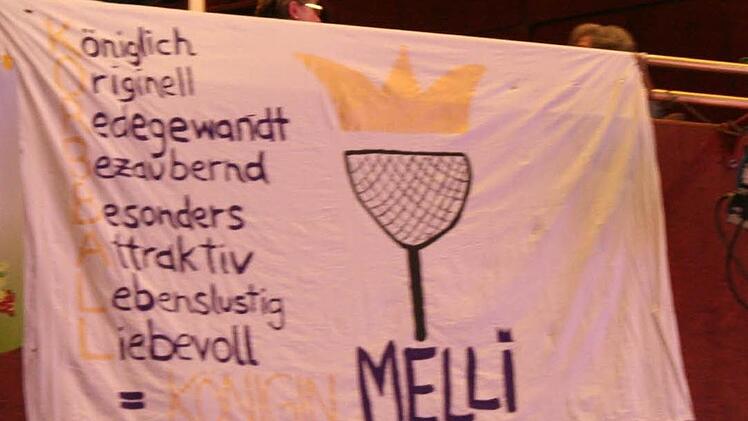 Königlich
Originell
Redegewandt
Bezaubernd
Besonders
Attraktiv
Lebenslustig
Liebevoll
= KÖNIGIN MELLi